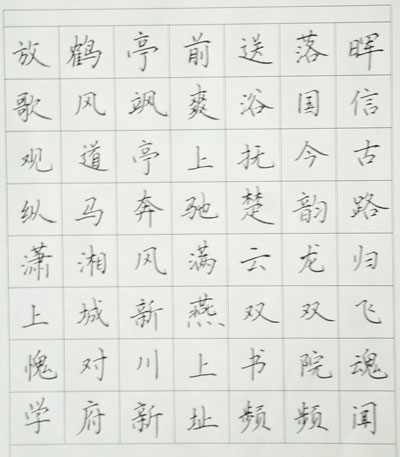 放鹤亭前送落晖
歌风飒爽浴国信
观道亭上抚今古
纵马奔驰楚韵路
潇湘风满云龙归
上城新燕双双飞
愧对川上书院魂
学府新址频频闻